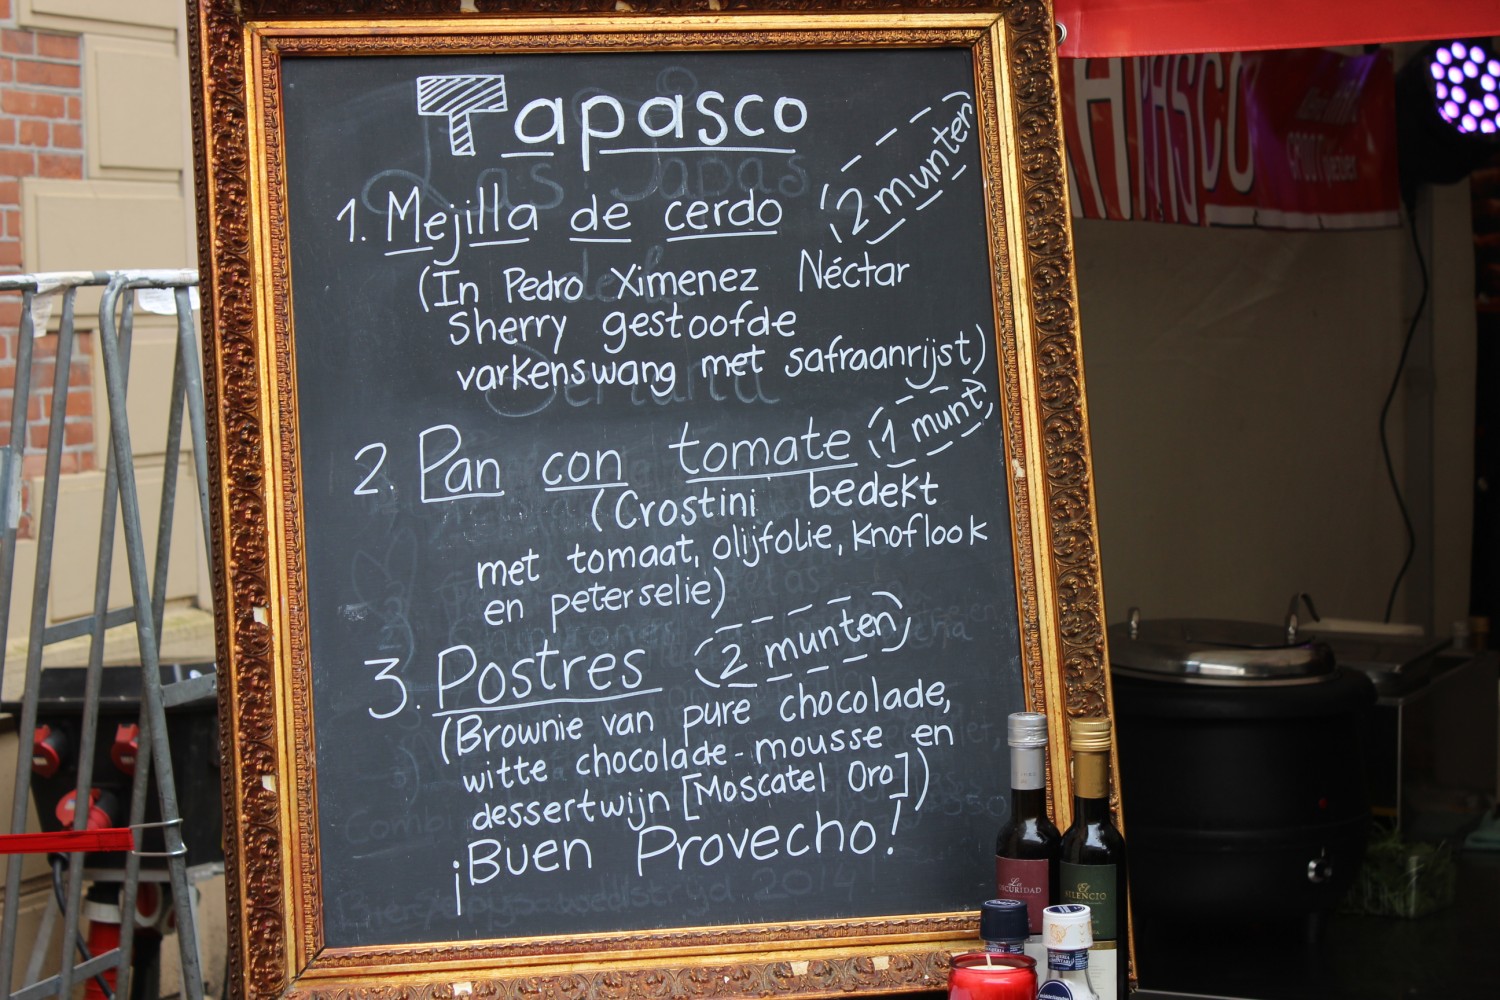 Tapasco
1. Mejilla de cerdo (2 munten)
(In Pedro Ximenez Néctar
Sherry gestoofde
varkenswang met safraanrijst)
2. Pan con tomate (1 munt)
(Crostini bedekt
met tomaat, olijfolie, knoflook
en peterselie)
3. Postres (2 munten)
(Brownie van pure chocolade,
witte chocolade-mousse en
dessertwijn [Moscatel Oro])
¡Buen Provecho!
TAPASCO
SILENCIO